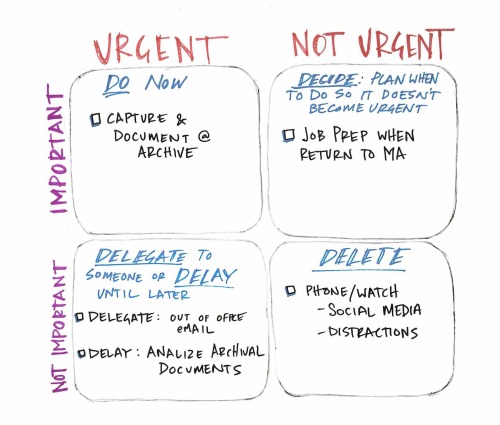 URGENT
NOT URGENT
IMPORTANT
DO NOW
☐ CAPTURE &
DOCUMENT @
ARCHIVE
DECIDE: PLAN WHEN
TO DO SO IT DOESN'T
BECOME URGENT
☐ JOB PREP WHEN
RETURN TO MA
NOT IMPORTANT
DELEGATE TO
SOMEONE OR DELAY
UNTIL LATER
☐ DELEGATE: OUT OF OFFICE
EMAIL
☐ DELAY: ANALIZE ARCHIVAL
DOCUMENTS
DELETE
☐ PHONE/WATCH
- SOCIAL MEDIA
- DISTRACTIONS